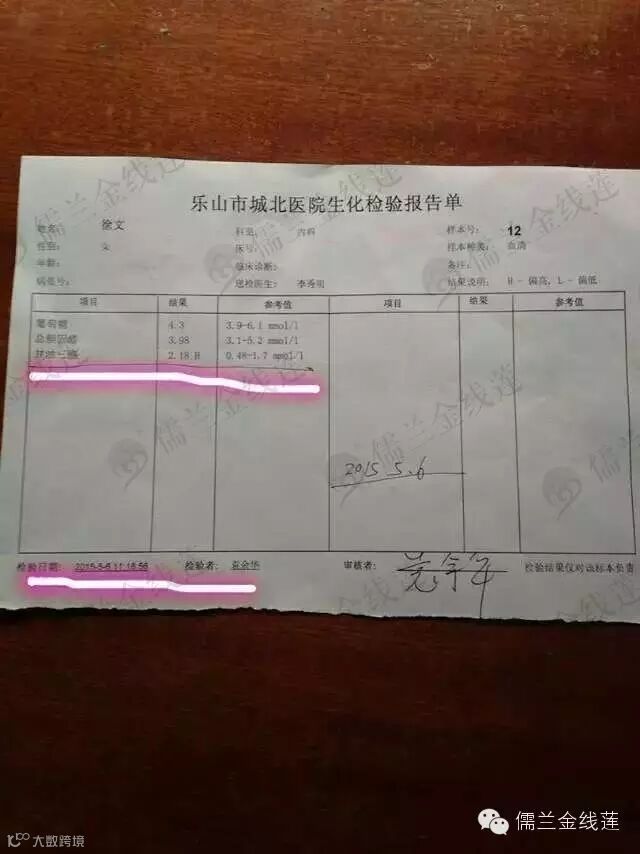 乐山市城北医院生化检验报告单
姓名: 徐文 科室: 内科 样本号: 12
性别: 女 床号: 样本种类: 血清
年龄: 临床诊断: 备注:
病历号: 送检医生: 李秀明 结果说明: H - 偏高, L - 偏低
项目 结果 参考值 项目 结果 参考值
葡萄糖 4.3 3.9-6.1 mmol/l
总胆固醇 3.98 3.1-5.2 mmol/l
甘油三酯 2.18 H 0.48-1.7 mmol/l
2015 5.6
检验日期: 2015-5-6 11:18:56 检验者: 金华 审核者: 检验结果仅对该标本负责
儒兰金线莲
儒兰金线莲
儒兰金线莲
儒兰金线莲
儒兰金线莲
大数跨境